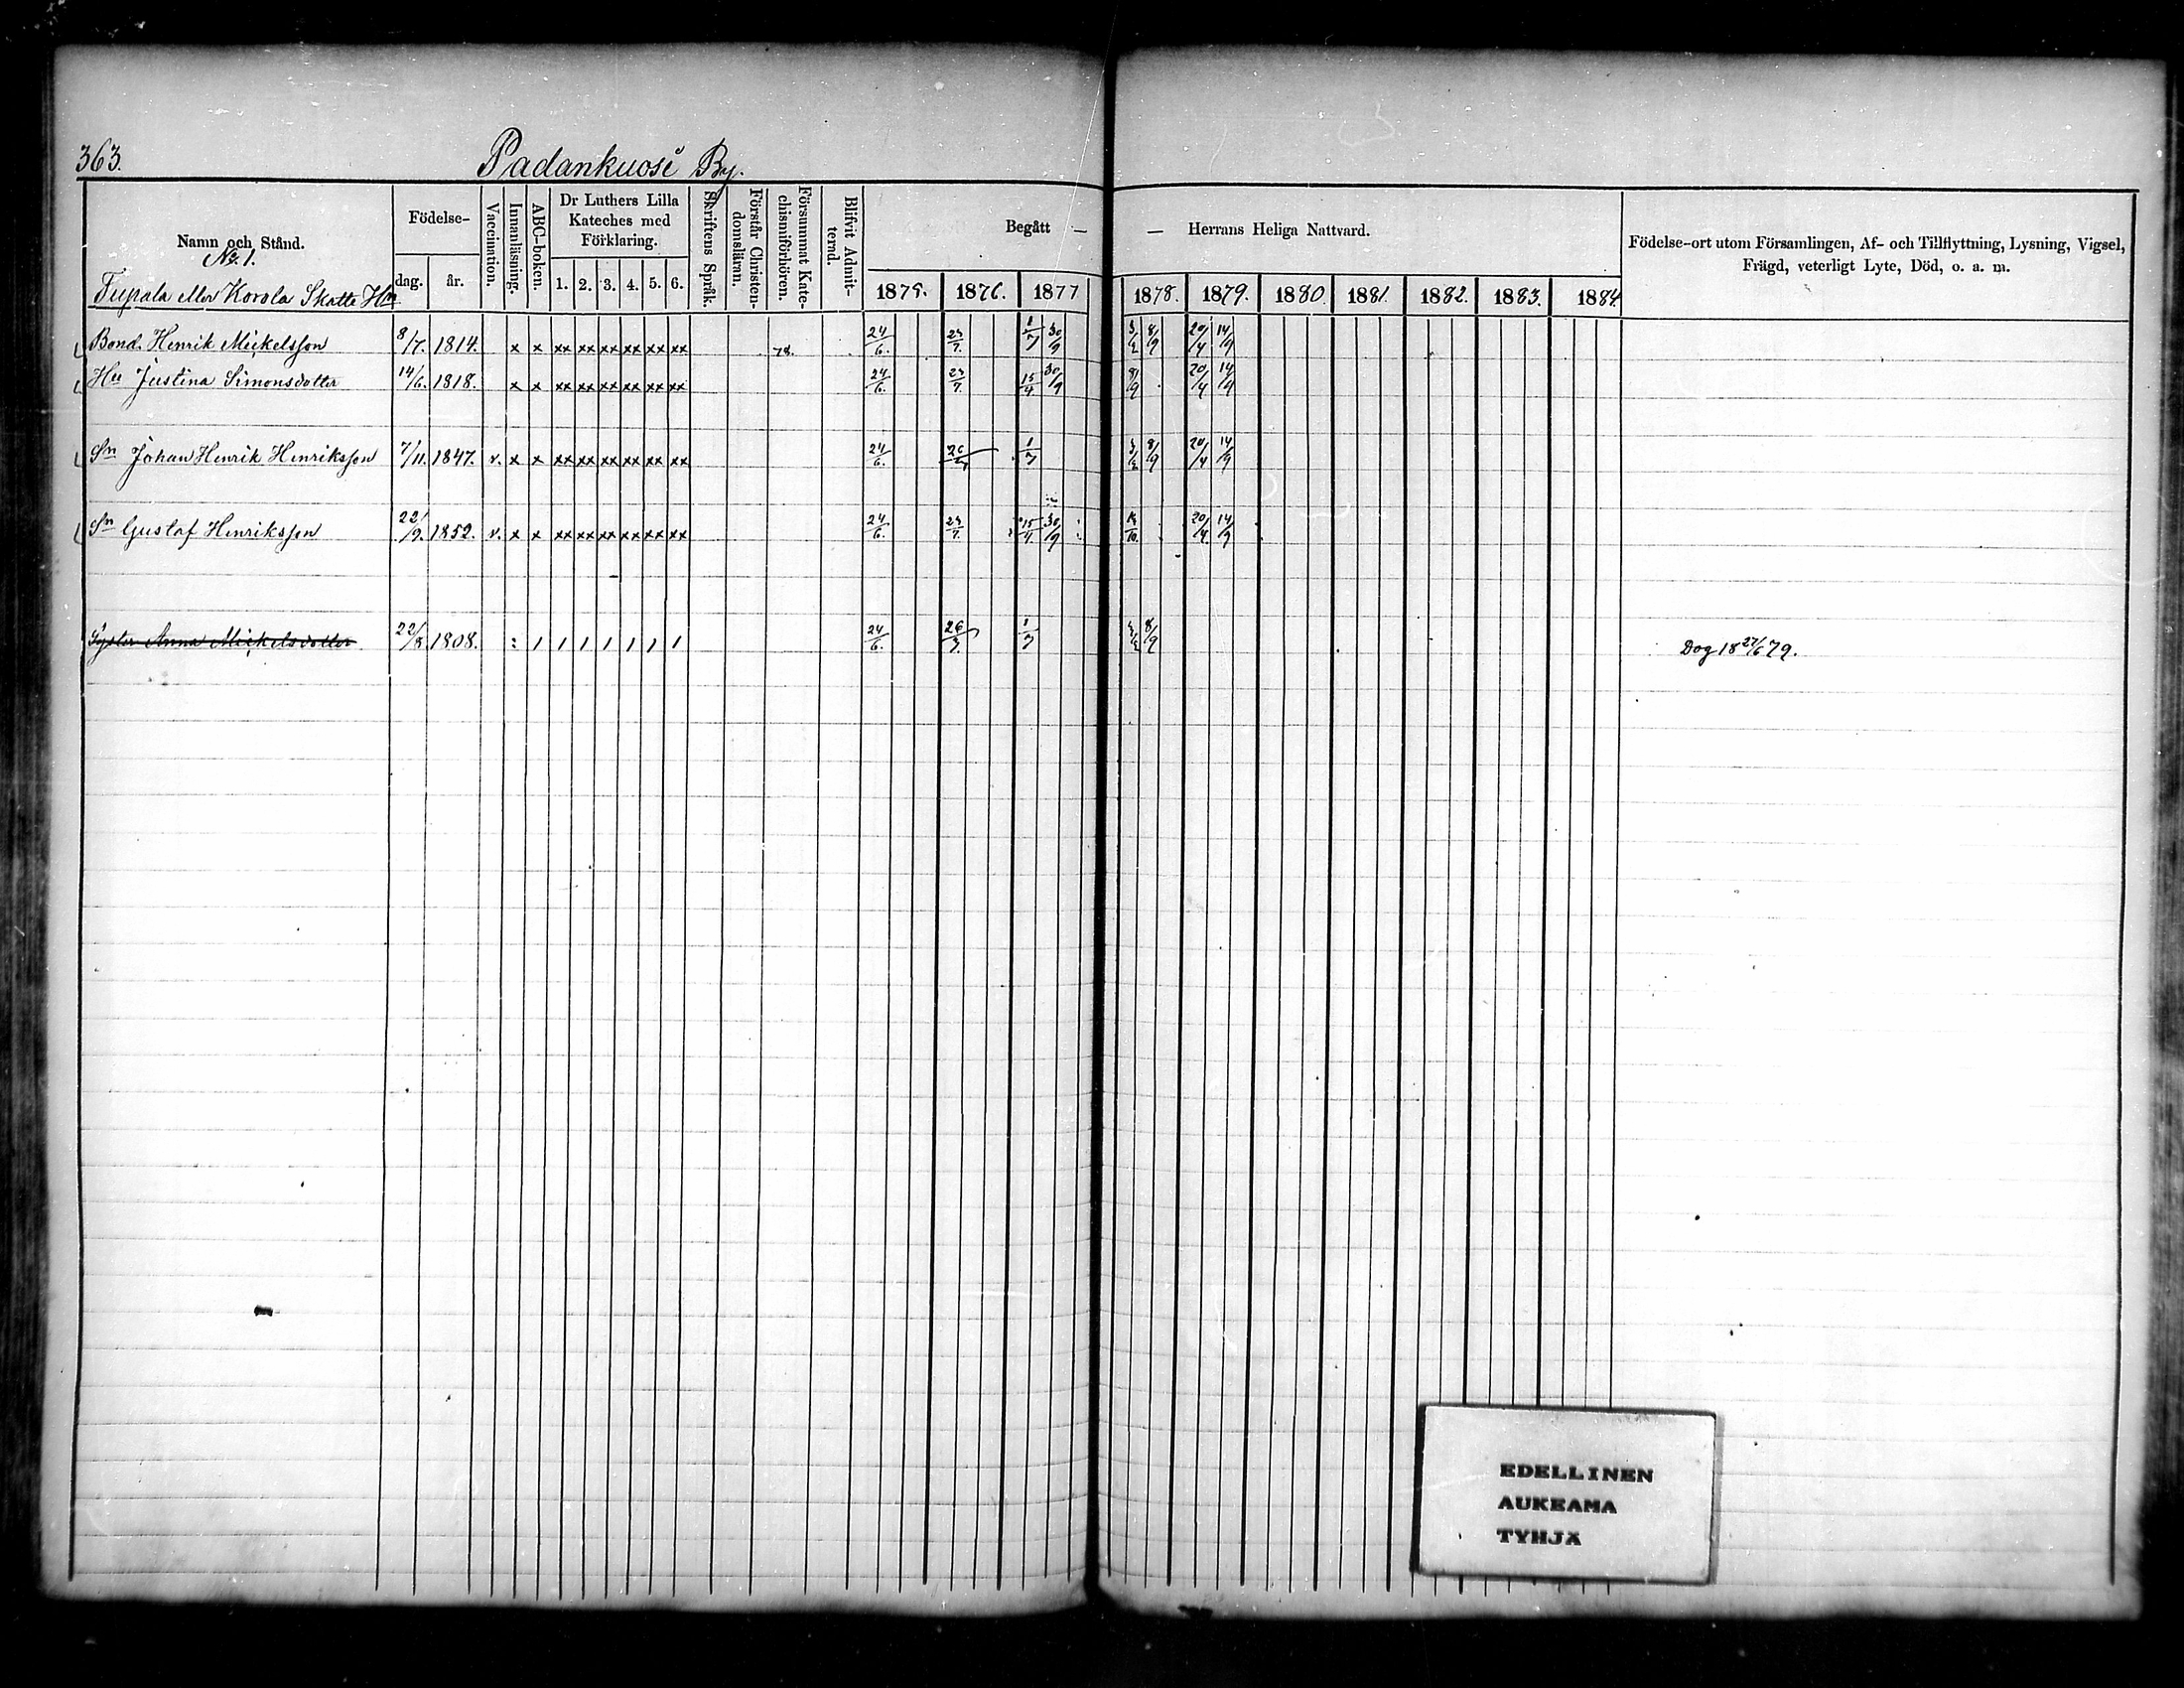 363.
Padankuosi By.
Namn och Stånd.
No. 1.
Tupala eller Korola Skatte Hn
Födelse-
dag. år.
Vaccination.
Innanläsning.
ABC-boken.
Dr Luthers Lilla
Kateches med
Förklaring.
1. 2. 3. 4. 5. 6.
Skriftens Språk.
Förstår Christen-
domsläran.
Försummat Kate-
chismiförhören.
Blifvit Admit-
terad.
Begått — — Herrans Heliga Nattvard.
1875. 1876. 1877 1878. 1879. 1880. 1881. 1882. 1883. 1884
Födelse-ort utom Församlingen, Af- och Tillflyttning, Lysning, Vigsel,
Frägd, veterligt Lyte, Död, o. a. m.
Bond. Henrik Mickelsson 8/7. 1814. x x xx xx xx xx xx xx 78. 24/6. 1/7 30/9 8/9 20/4 14/9
Hu Justina Simonsdotter 14/6. 1818. x x xx xx xx xx xx xx 24/6. 15/4 30/9 8/9 20/4 14/9
Sn Johan Henrik Henriksson 7/11. 1847. v. x x xx xx xx xx xx xx 24/6. 26/7 1/7 8/9 20/4 14/9
Sn Gustaf Henriksson 22/9. 1852. v. x x xx xx xx xx xx xx 24/6. 15/4. 30/9 20/4. 14/9
Syster Anna Mickelsdotter 22/8 1808. : / / / / / / / 24/6. 26/7. 1/7 8/9 Dog 18 27/6 79.
EDELLINEN
AUKEAMA
TYHJÄ